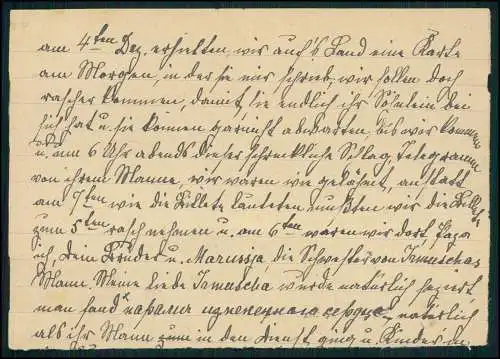 am 4ten Dez. erhielten, wir auf's Land eine Karte
am Morgen, in der sie uns schrieb, wir sollen doch
rascher kommen, damit, sie endlich ihr Söhnlein bei
sich hat u. sie können garnicht abwarten, bis wir kommen
u. um 6 Uhr abends dieser schreckliche Schlag, Telegramm
von ihrem Manne, wir waren wie gelähmt, anstatt
am 7ten wie die Billete lauteten mußten wir die Billete
zum 5ten rasch nehmen u. am 6ten waren wir dort,
ich, Dein Bruder u. Marussja, die Schwester von Irmuscha's
Mann. Meine liebe Irmuscha wurde natürlich seziert
man fand паралич сердца, natürlich
als ihr Mann zum in den Dienst, ging u. Kinder in